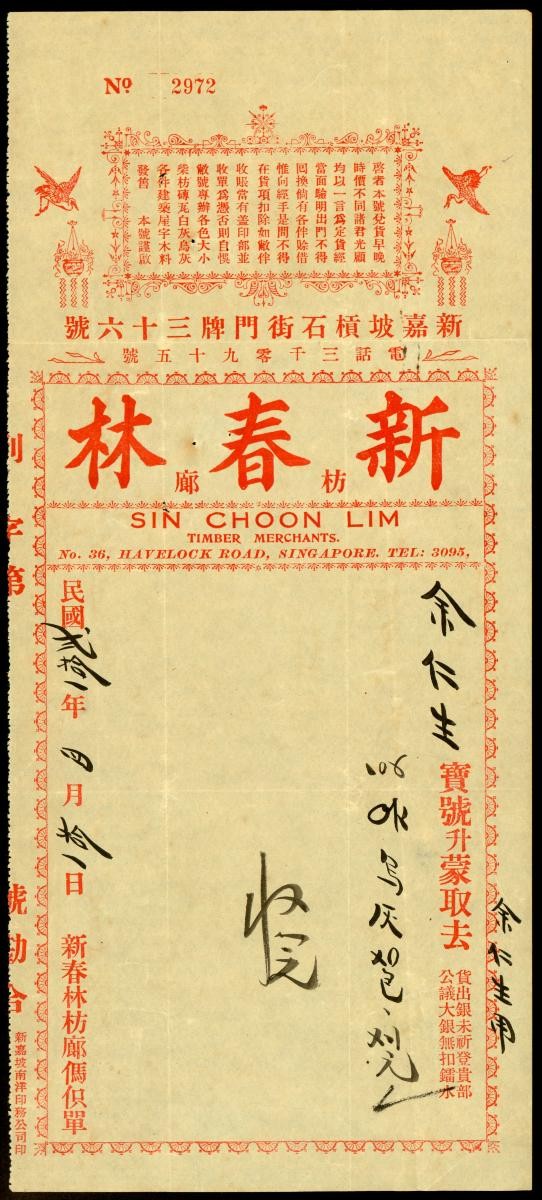 Nº 2972
啓者本號兌貨早晚
時價不同諸君光顧
均以一言為定貨經
當面驗明出門不得
囘換倘有各伴賒借
惟向經手是問不得
在貨項扣除如敝伴
收賬當有盖印部並
收單為憑否則自悞
敝號專辦各色大小
柴枋磚瓦白灰烏灰
各件建築屋宇木料
發售 本號謹啟
新嘉坡槓石街門牌三十六號
電話三千零九十五號
新春林
枋廊
SIN CHOON LIM
TIMBER MERCHANTS.
No. 36, HAVELOCK ROAD, SINGAPORE. TEL: 3095,
余仁生用
余仁生寶號升蒙取去
貨出銀未祈登貴部
公議大銀無扣鐳水
烏灰
收完
民國貳拾一年四月拾一日 新春林枋廊傌俱單
字第 號勘合
新嘉坡南洋印務公司印